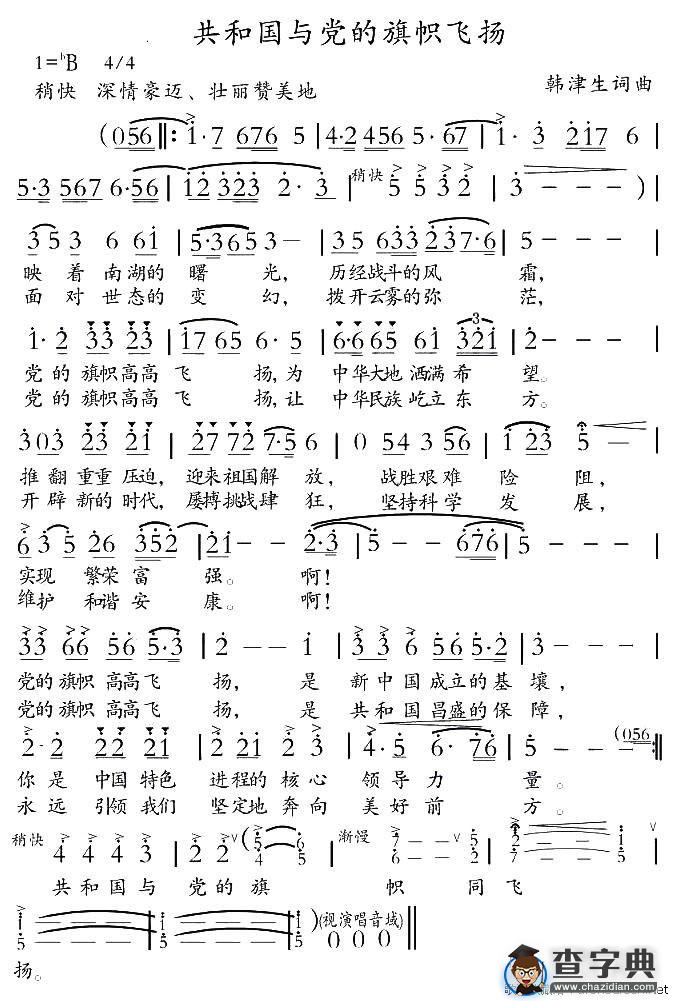 共和国与党的旗帜飞扬
1=♭B 4/4
稍快 深情豪迈、壮丽赞美地
韩津生词曲
(056‖: 1·7 676 5 | 4·2 456 5·67 | 1·3 217 6 |
5·3 567 6·56 | 12 323 2·3 | 稍快 5 5 3 2 | 3 - - - ) |
3 5 3 6 61 | 5·365 3 - | 35 633 237·6 | 5 - - - |
映着南湖的曙光，历经战斗的风霜，
面对世态的变幻，拨开云雾的弥茫，
1·2 33 23 | 17 65 6·5 | 6·665 61 321 | 2 - - - |
党的旗帜高高飞扬，为中华大地洒满希望。
党的旗帜高高飞扬，让中华民族屹立东方。
303 23 21 | 27 72 7·5 6 | 0 54 3 56 | 1 23 5 - |
推翻重重压迫，迎来祖国解放，战胜艰难险阻，
开辟新的时代，屡搏挑战肆狂，坚持科学发展，
6 3 5 26 352 | 21 - 2·3 | 5 - - 676 | 5 - - - |
实现繁荣富强。啊！
维护和谐安康。啊！
33 66 56 5·3 | 2 - - 1 | 3 3 6 56 5·2 | 3 - - - |
党的旗帜高高飞扬，是新中国成立的基壤，
党的旗帜高高飞扬，是共和国昌盛的保障，
2·2 22 21 | 2 21 2 3 | 4·5 6·76 | 5 - - (056 :‖
你是中国特色进程的核心领导力量。
永远引领我们坚定地奔向美好前方。
稍快 4 4 4 3 | 2 2 2 渐慢
共和国与党的旗帜同飞
(视演唱音域) 0 0 0 ‖
扬。
查字典
www.chazidian.com